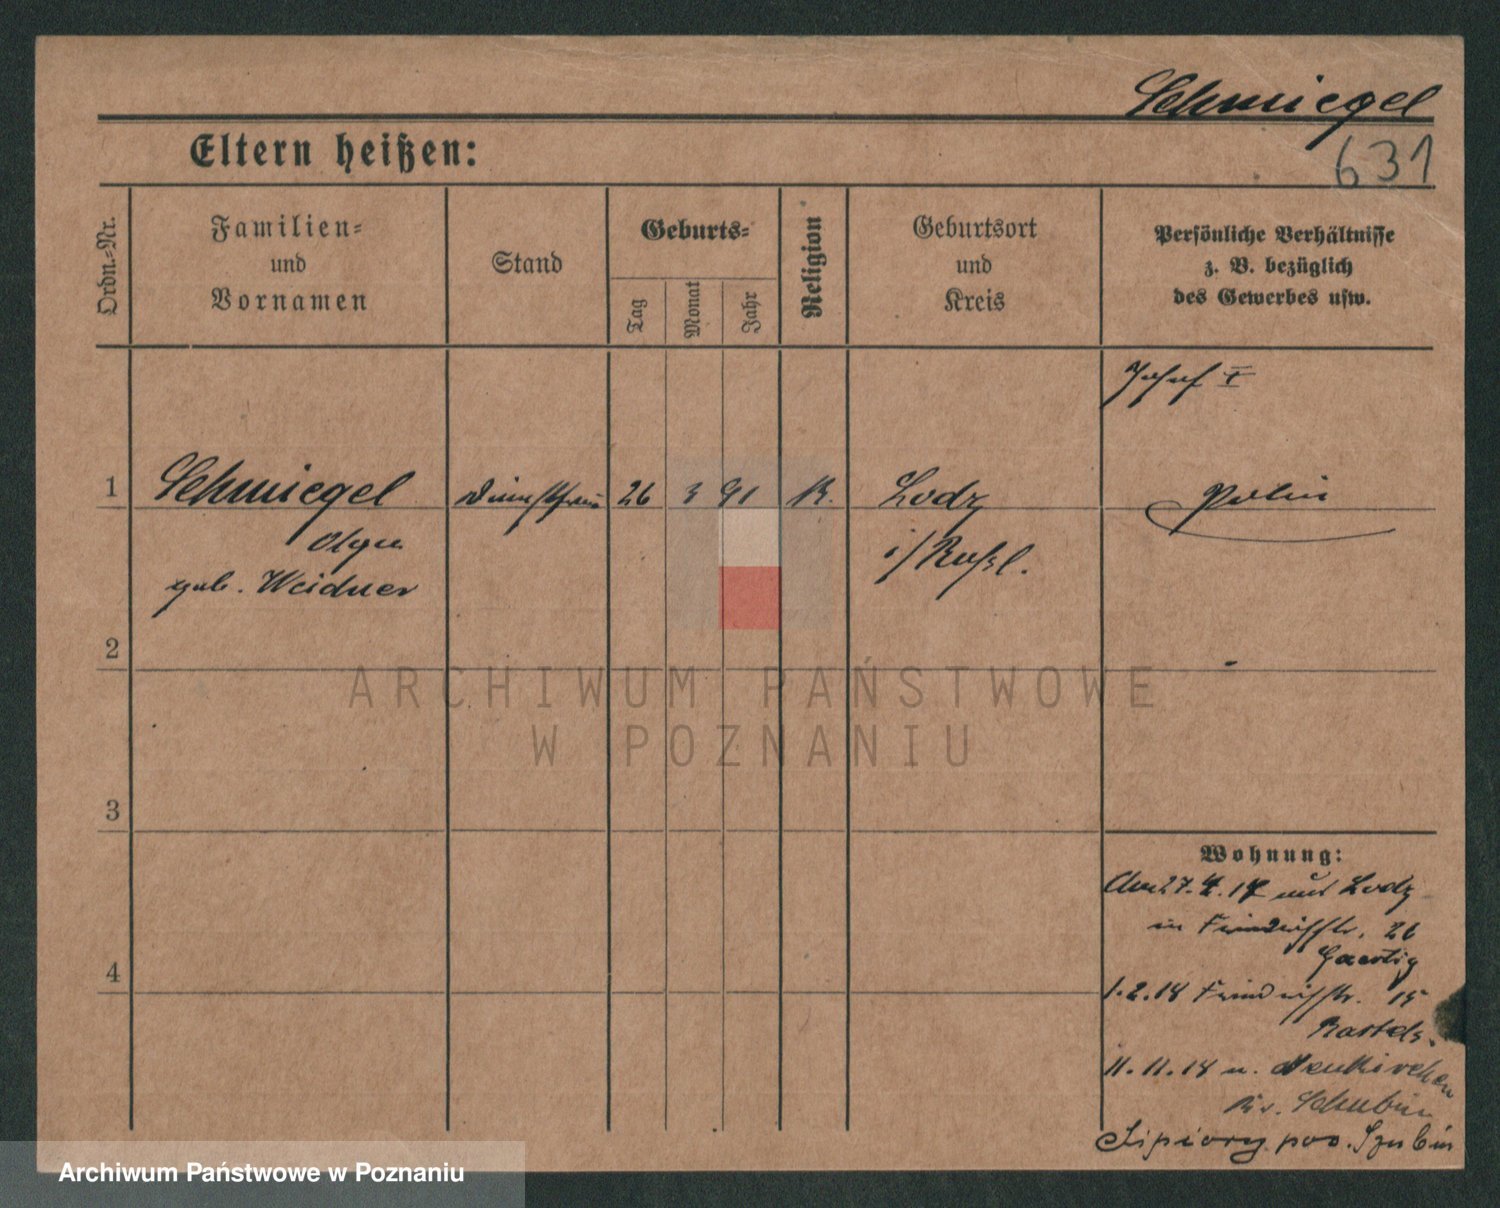 Schmiegel
Eltern heißen:
631
Ordn.-Nr.
Familien-
und
Vornamen
Stand
Geburts-
Tag
Monat
Jahr
Religion
Geburtsort
und
Kreis
Persönliche Verhältnisse
z. B. bezüglich
des Gewerbes usw.
Josef I
1 Schmiegel 26 3 91 K. Lodz Polin
Olga
geb. Weidner
i/Rußl.
2
3
4
Wohnung:
Am 27. 4. 17 aus Lodz
in Friedrichstr. 26
Gaertig
1.2.18 Friedrichstr. 15
Bartels.
11.11.18 n. Neukirchen
Kr. Schubin
Lipiory pow. Szubin
ARCHIWUM PAŃSTWOWE
W POZNANIU
Archiwum Państwowe w Poznaniu